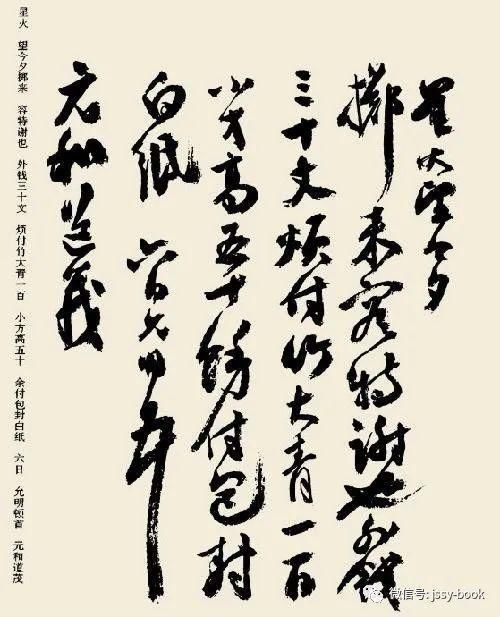 星火望今夕
擲来容特謝也外錢
三十文煩付竹大青一百
小方高五十餘付包封
白紙 六日允明頓首
元和道茂
星火 望今夕掷来 容特谢也 外钱三十文 烦付竹大青一百 小方高五十 余付包封白纸 六日 允明顿首 元和道茂
微信号: jssy-book